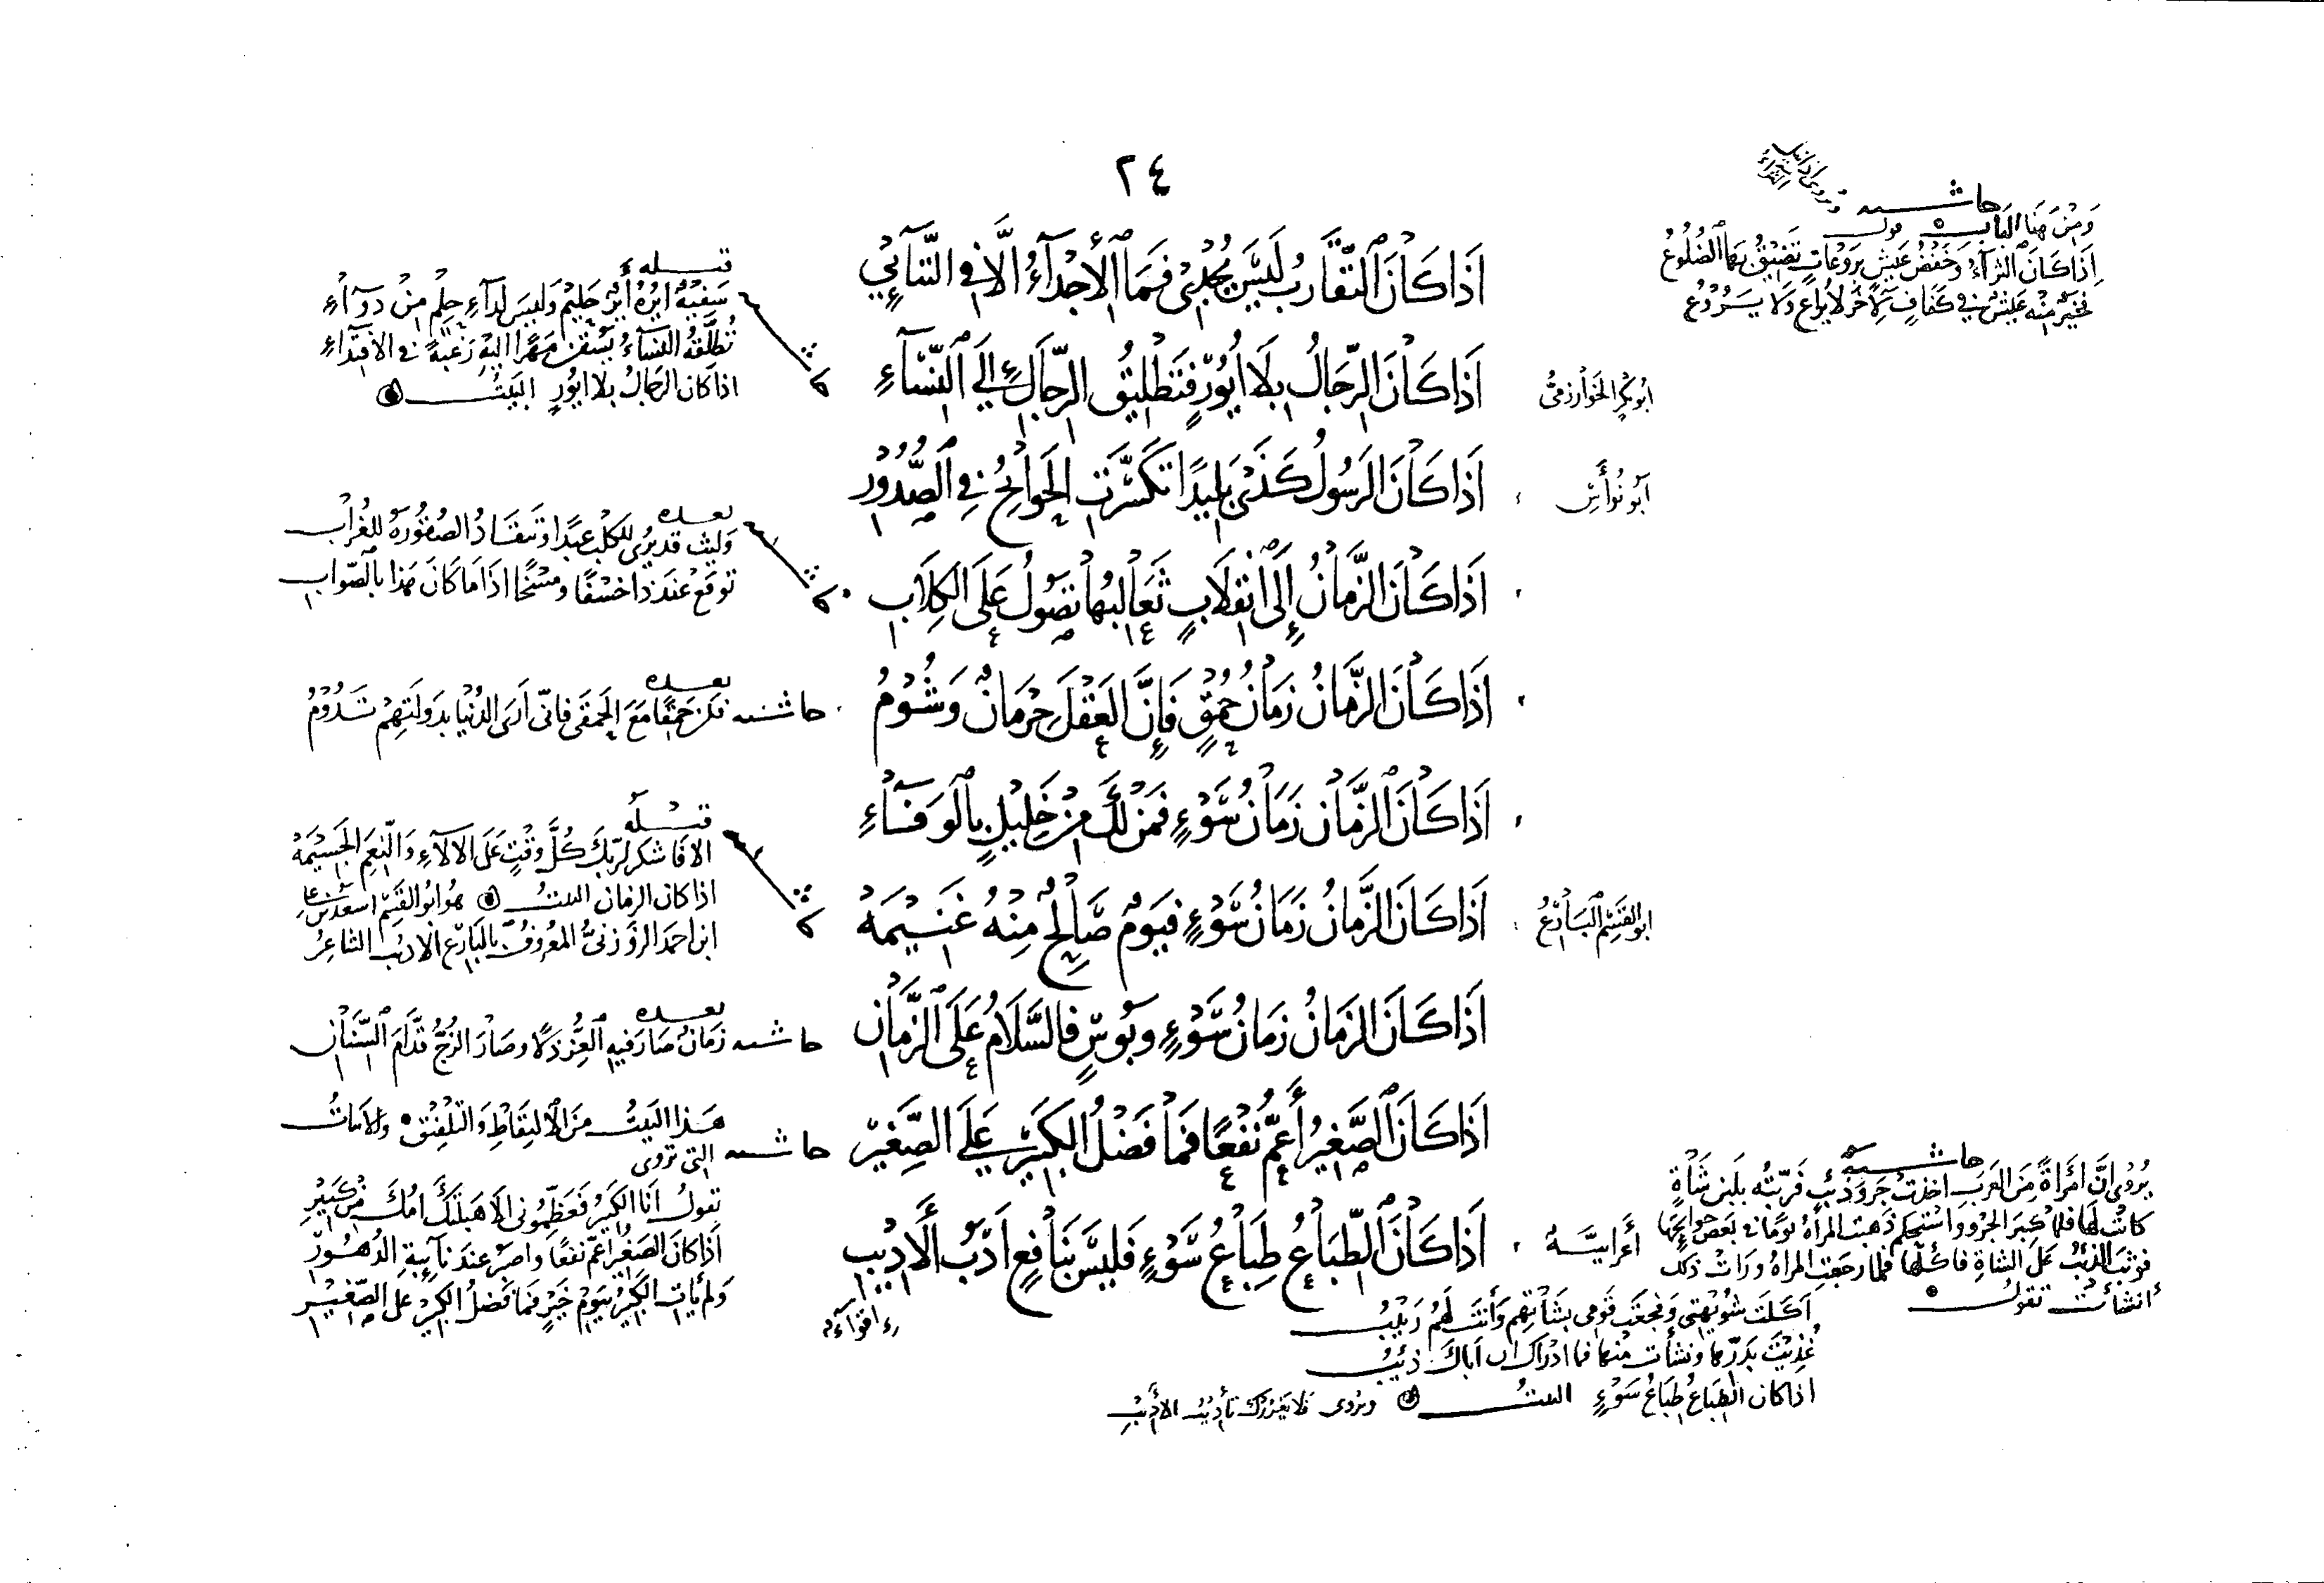 ٢٤
حاشيه
وَمِنْ هَذا البَاب قول
اِذَا كَانَ الثرآءُ وَخَفضُ عَيشٍ بَرَوْعَاتٍ تَضِيْقُ بهَا الضُلُوعُ
فخَيرٌ مِنْه عَيشٌ في كَفافٍ لاخر لا يُراع وَلا يَرُوْعُ
اَذَا كَانَ التَّقَارُبُ لَيسَ يُجْدِى فَمَا الأجْدَآءُ الَّا فِى التَّنَآئِي
اَبُو بَكرٍ الخَوارزمىُّ
اَذَا كَانَ الرِّجَالُ بِلَا اُيُوْرٍ فَتَطْلِيْقُ الرِّجَالِ إِلَى النِّسَآءِ
قبله
سَفِيْهٌ ايرُهُ أَيرٌ حَليمٌ وَليسَ لدآءِ حِلمٍ مِنْ دوآءِ
تُطَلِّقهُ النِسَآءُ بسَقْن مَهرًا اليْهِ رَغبةً فى الافتِدَآءِ
اذا كان الرجالُ بلا ايُورٍ البَيتُ
اَبُو نُوأَسٍ
اَذَا كَانَ الرَسُولُ كَذَى بَلِيدًا تكَسَّرَتِ الحَوَائجُ فِي الصُّدُوْرِ
اَذَا كَانَ الزَّمانُ إِلَى انْقِلَابٍ ثَعَالبُها تصُوْلُ عَلَى الكِلَابِ
بعده
وَليث قد يُرى للكلبِ عبدًا وَتنقادُ الصُقُورَةُ للغُرابِ
توقع عندَ ذا خسْفًا ومسْخًا اذَا مَا كَانَ هَذا بالصَّوابِ
اَذَا كَانَ الزَّمَانُ زَمَانَ حُمْقٍ فَإِنَّ العَقْلَ حِرْمَانٌ وَشُوْمُ
حاشيه
بعده
فكن حَمِقًا مَعَ الحَمقَى فانّى اَرَى الدُنْيا بدَولَتِهِمْ تَدُوْمُ
اَذَا كَانَ الزَّمَان زَمَانُ سَوْءٍ فَمَنْ لَكَ مِنْ خَلِيْلٍ بِالوَفَآءِ
ابو القسِم البَارِعُ
اَذَا كَانَ الزَّمانُ زَمَانُ سَوْءٍ فيَومٌ صَالِحٌ مِنْهُ غَنِيْمَهْ
قبله
الا فَاشكر لربّكَ كُلَّ وَقتٍ عَلَى الالآءِ وَالنِّعَمِ الجَسِيْمَهْ
اذا كان الزمان البيتُ هُوَ ابو القَسِم اسعَدُ بن على
ابن احمَد الزوزنىُّ المعرُوفُ بالبَارِع الاديب الشاعِرُ
اَذَا كَانَ الزمَانُ زمَانُ سَوْءٍ وبُوسٍ فالسَّلَامُ عَلَى الزَّمَانِ
حاشيه
بعده
زَمَانٌ صَارَ فيهِ العِزُّ ذلًا وصَارَ الزُجُّ قدَّامَ السِّنَانِ
اَذَا كَانَ الصَّغِيرُ أَعَمَّ نَفْعًا فَمَا فَضْلُ الكَبِيْرِ عَلَى الصَّغِيْرِ
حاشيه
هَذا البَيتُ مِنَ الالتِقَاطِ وَالتَلْفِيْقِ وَالابياتُ
التى تروى
تقولُ اَنَا الكَبِيرُ فَعَظِّمُونى اَلَا هَبلتْكَ اُمّكَ مِنْ كَبيْرِ
اَذَا كَانَ الصَغيرُ اَعَمَّ نفعًا واصبرَ عندَ نآئِبةِ الدُهُوْرِ
وَلَم يَأتِ الكَبيرُ بيَوْمِ خَيرٍ فمَا فَضلُ الكَبيْرِ عَلى الصَّغِيْرِ
أعرابيَّهٌ
اَذَا كَانَ الطِّبَاعُ طِبَاعُ سَوْءٍ فَليسَ بنَافِعٍ اَدَبُ الأَدِيْبِ
اقوآء
حاشيه
يُروَى اَنَّ امرَاةً مِنَ العَرَب اخذتْ جَرْوَ ذئبٍ فَربّتْه بلبن شَاةٍ
كانتْ لهَا فلمّا كبرَ الجرْو واستحكَم ذهَبت المرأةُ يومًا فى بَعض حَوائجِهَا
فوثبَ الذئبُ عَلَى الشاةِ فاكلَها فلمّا رجَعت المرأة ورَاتْ ذلكَ
أنشأتْ تقولُ
اَكَلتَ شوَيهتى وَفجَعتَ قومى بشَاتِهم وَأنتَ لَهُم رَبيْبُ
غُذِيْتَ بدَرّها ونشَأت منها فما ادْراكَ ان اَباكَ ذئيبُ
اذا كان الطبَاعُ طبَاعُ سَوْءٍ البيتُ ويُروى فلا يَغرركَ تأديبُ الأديبِ